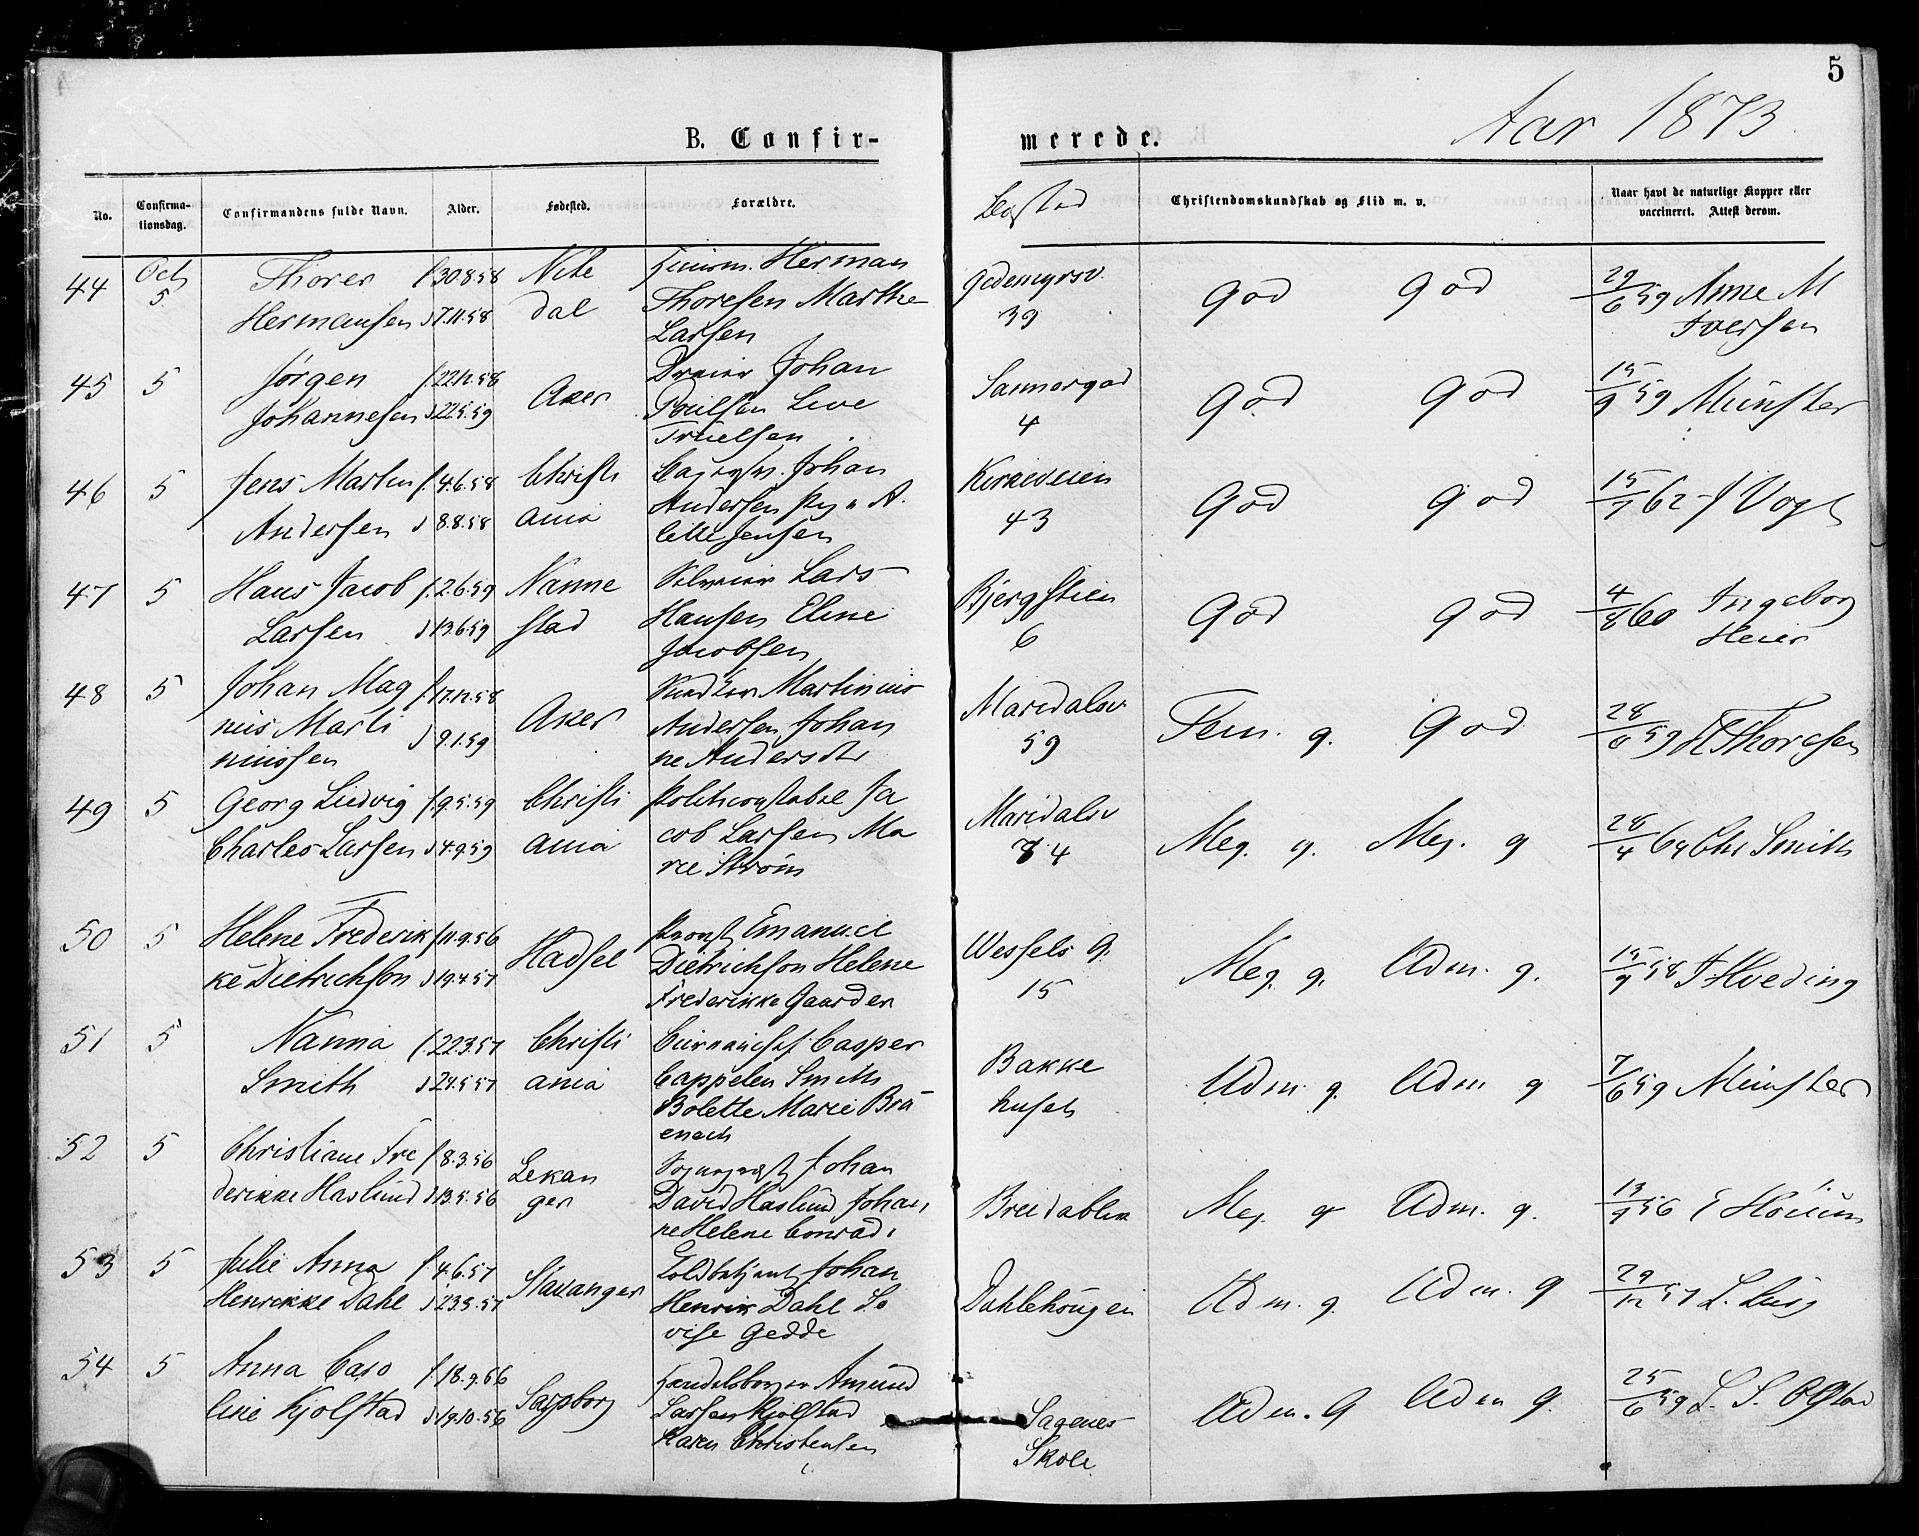 5
Aar 1873
B. Confir-
merede.
No.
Confirma-
tionsdag.
Confirmandens fulde Navn.
Alder.
Fødested.
Forældre.
Bosted
Christendomskundskab og Flid m. v.
Naar havt de naturlige Kopper eller
vaccineret. Attest derom.
44 Oct f 30.8.58 Herman Gedemyrsv. God God 29/6 59 Anne M
5 Hermansen d 7.11.58 dal Thoresen Marthe 39 Iversen
Larsen
45 5 Jørgen f. 22.12.58 Aker Johan 4 God God 15/9 59 Münster
Johannesen d 22.5.59
Truelsen
46 5 Jens Martin f. 4.6.58 Christi Johan Kirkeveien God God 15/7 62 J Vogt
Andersen d 8.8.58 ania Andersen 43
Jensen
47 5 Hans Jacob f. 2.6.59 Nanne Lars Bjergstien God God 4/8 60 Ingeborg
Larsen d 13.6.59 stad Hansen Eline 6 Heier
Jacobsen
48 5 Johan Mag f 17.12.58 Aker Martinius Maridalsv Tem. g. God 59 H Thoresen
nus Marti d 9.1.59 Andersen Johan 59
niusen ne Andersdtr
49 5 Georg Ludvig f. 9.5.59 Christi Politiconstabel Ja Maridalsv Meg. g. Meg. g 28/4 64 Chr Smith
Charles Larsen d 4.9.59 ania cob Larsen Ma 74
rie Strøm
50 5 Helene Frederik f 11.9.56 Hadsel Provst Emanuel Wessels G. Meg. g. Udm. g. 15/9 58 Hveding
ke Dietrichson d 19.4.57 Dietrichson Helene 15
Frederikke Gaarder
51 5 Nanna f. 22.3.57 Christi Casper Bakke Udm. g. Udm g 7/6 59 Münster
Smith d 24.5.57 ania Cappelen Smith huset
Bolette Marie Bra
enech
52 5 Christiane Fre f 8.3.56 Lekan Sogneprest Johan Breidablik Meg. g Udm. g. 13/9 56
derikke Haslund d 13.5.56 ger David Haslund Johan
ne Helene Conradi
53 5 Julie Anna f 4.6.57 Stavanger Toldbetjent Johan Dahlehougen Udm. g. Udm. g 29/12 57
Henrikke Dahl d 23.5.57 Henrik Dahl Lo
vise Gedde
54 5 Anna Caro f. 18.9.56 Sarpsborg Handelsborger Amund Sagenes Udm. G Udm g. 25/6 59
line Kjolstad d 19.10.56 Larsen Kjolstad Skole
Karen Christensen